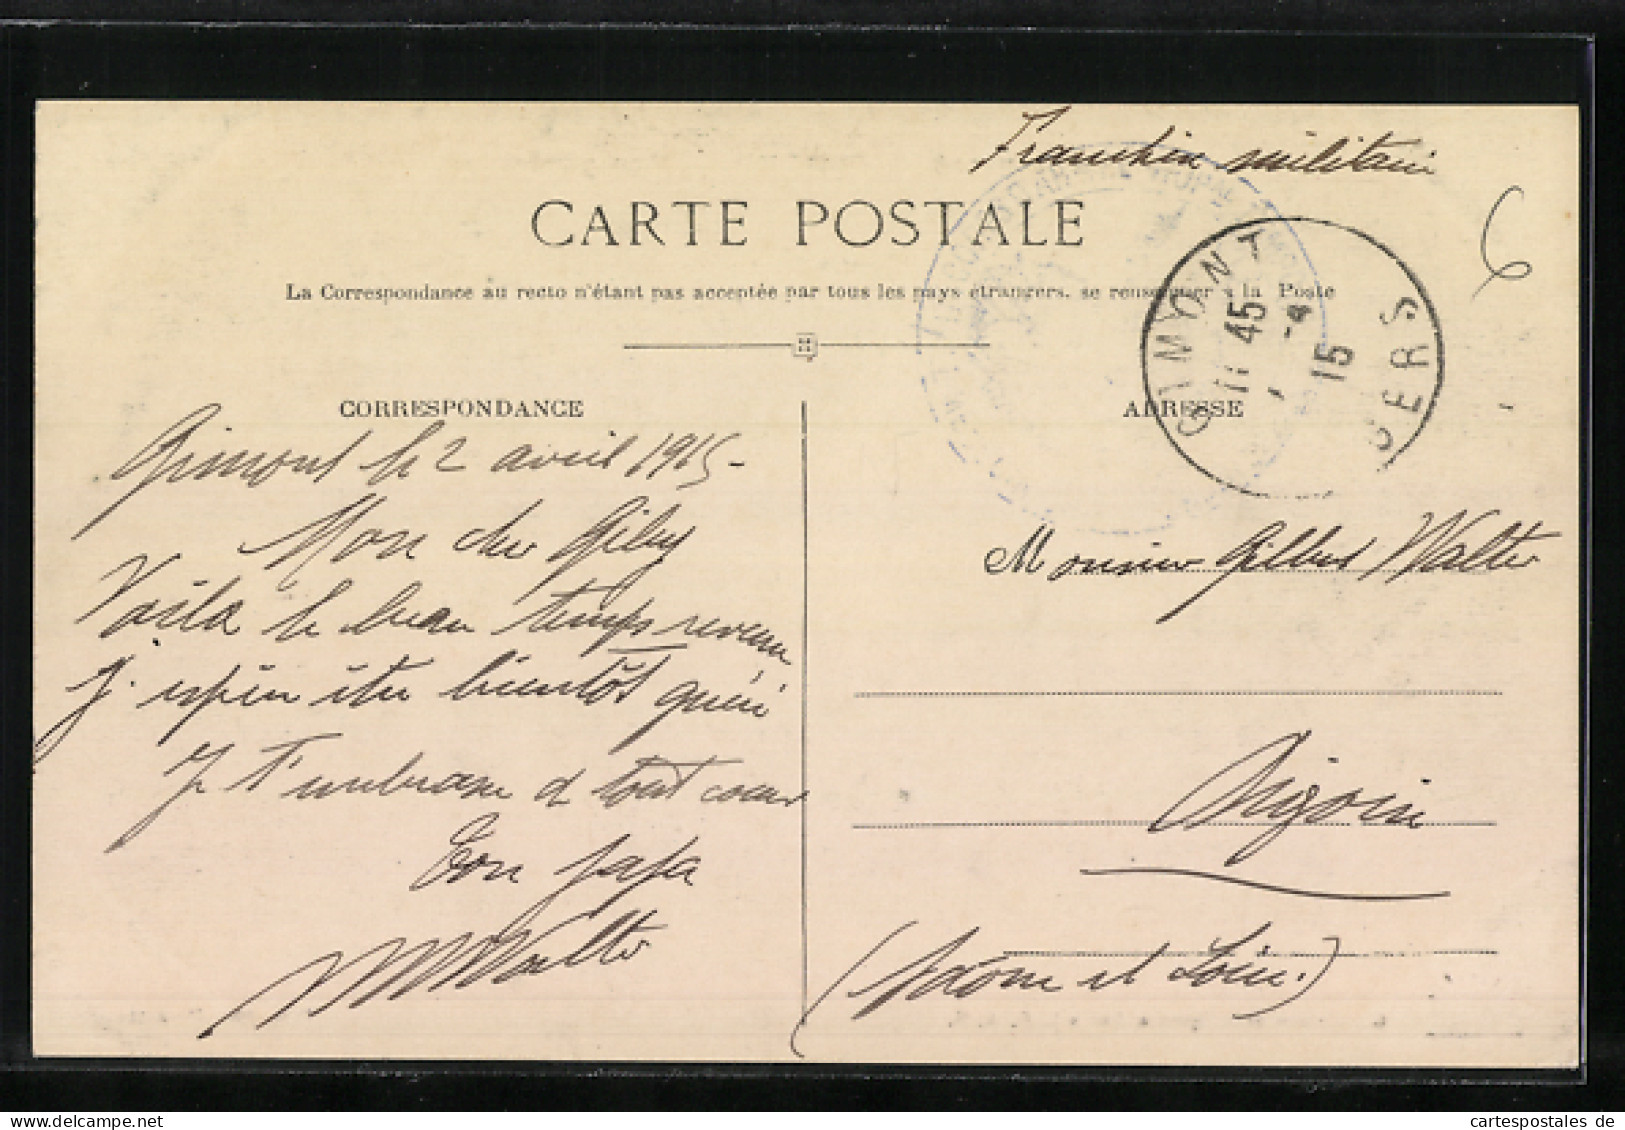 Franchise militaire
6
CARTE POSTALE
La Correspondance au recto n'étant pas acceptée par tous les pays étrangers, se renseigner à la Poste
GIMONT
11 45
-4
15
GERS
CORRESPONDANCE
Gimont le 2 avril 1915-
Mon cher Giby
Voilà le beau temps revenu
J'espère être bientôt guéri
Je t'embrasse de tout cœur
Ton papa
Walter
ADRESSE
Monsieur Gilbert Walter
Digoin
(Saône et Loire.)
cartespostales de